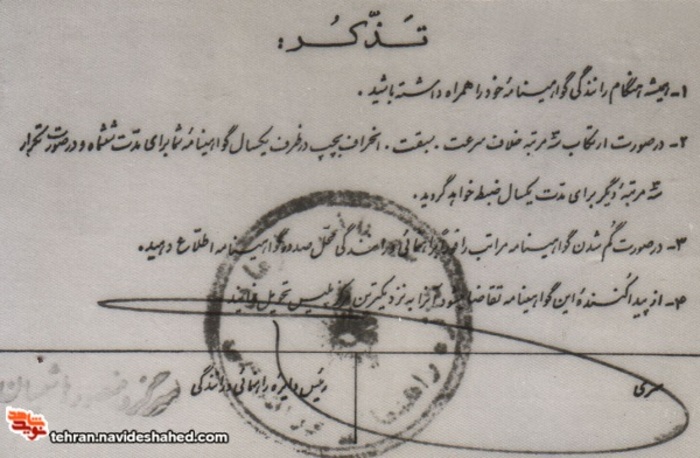 تذکّر :
۱- همیشه هنگام رانندگی گواهینامه خود را همراه داشته باشید .
۲- در صورت ارتکاب سه مرتبه خلاف سرعت . سبقت . انحراف بچپ در ظرف یکسال گواهینامه شما برای مدت ششماه و در صورت تکرار
سه مرتبه دیگر برای مدت یکسال ضبط خواهد گردید .
۳- در صورت گم شدن گواهینامه مراتب را فوراً براهنمائی و رانندگی محل صدور گواهینامه اطلاع دهید .
۴- از پیدا کننده این گواهینامه تقاضا میشود آنرا به نزدیکترین مرکز پلیس تحویل فرمایند
رئیس دایره راهنمائی و رانندگی
نوید شاهد
tehran.navideshahed.com